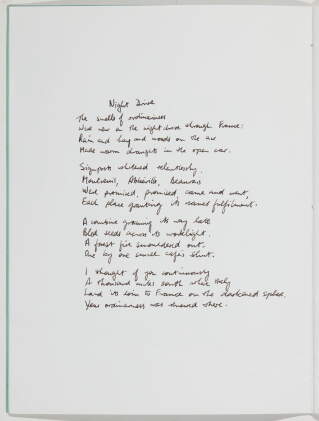 Night Drive
The smells of ordinariness
Were new on the night drive through France:
Rain and hay and woods on the air
Made warm draughts in the open car.
Signposts whitened relentlessly.
Montreuil, Abbéville, Beauvais
Were promised, promised, came and went,
Each place granting its name's fulfilment.
A combine groaning its way late
Bled seeds across its work-light.
A forest fire smouldered out.
One by one small cafés shut.
I thought of you continuously
A thousand miles south where Italy
Laid its loin to France on the darkened sphere.
Your ordinariness was renewed there.